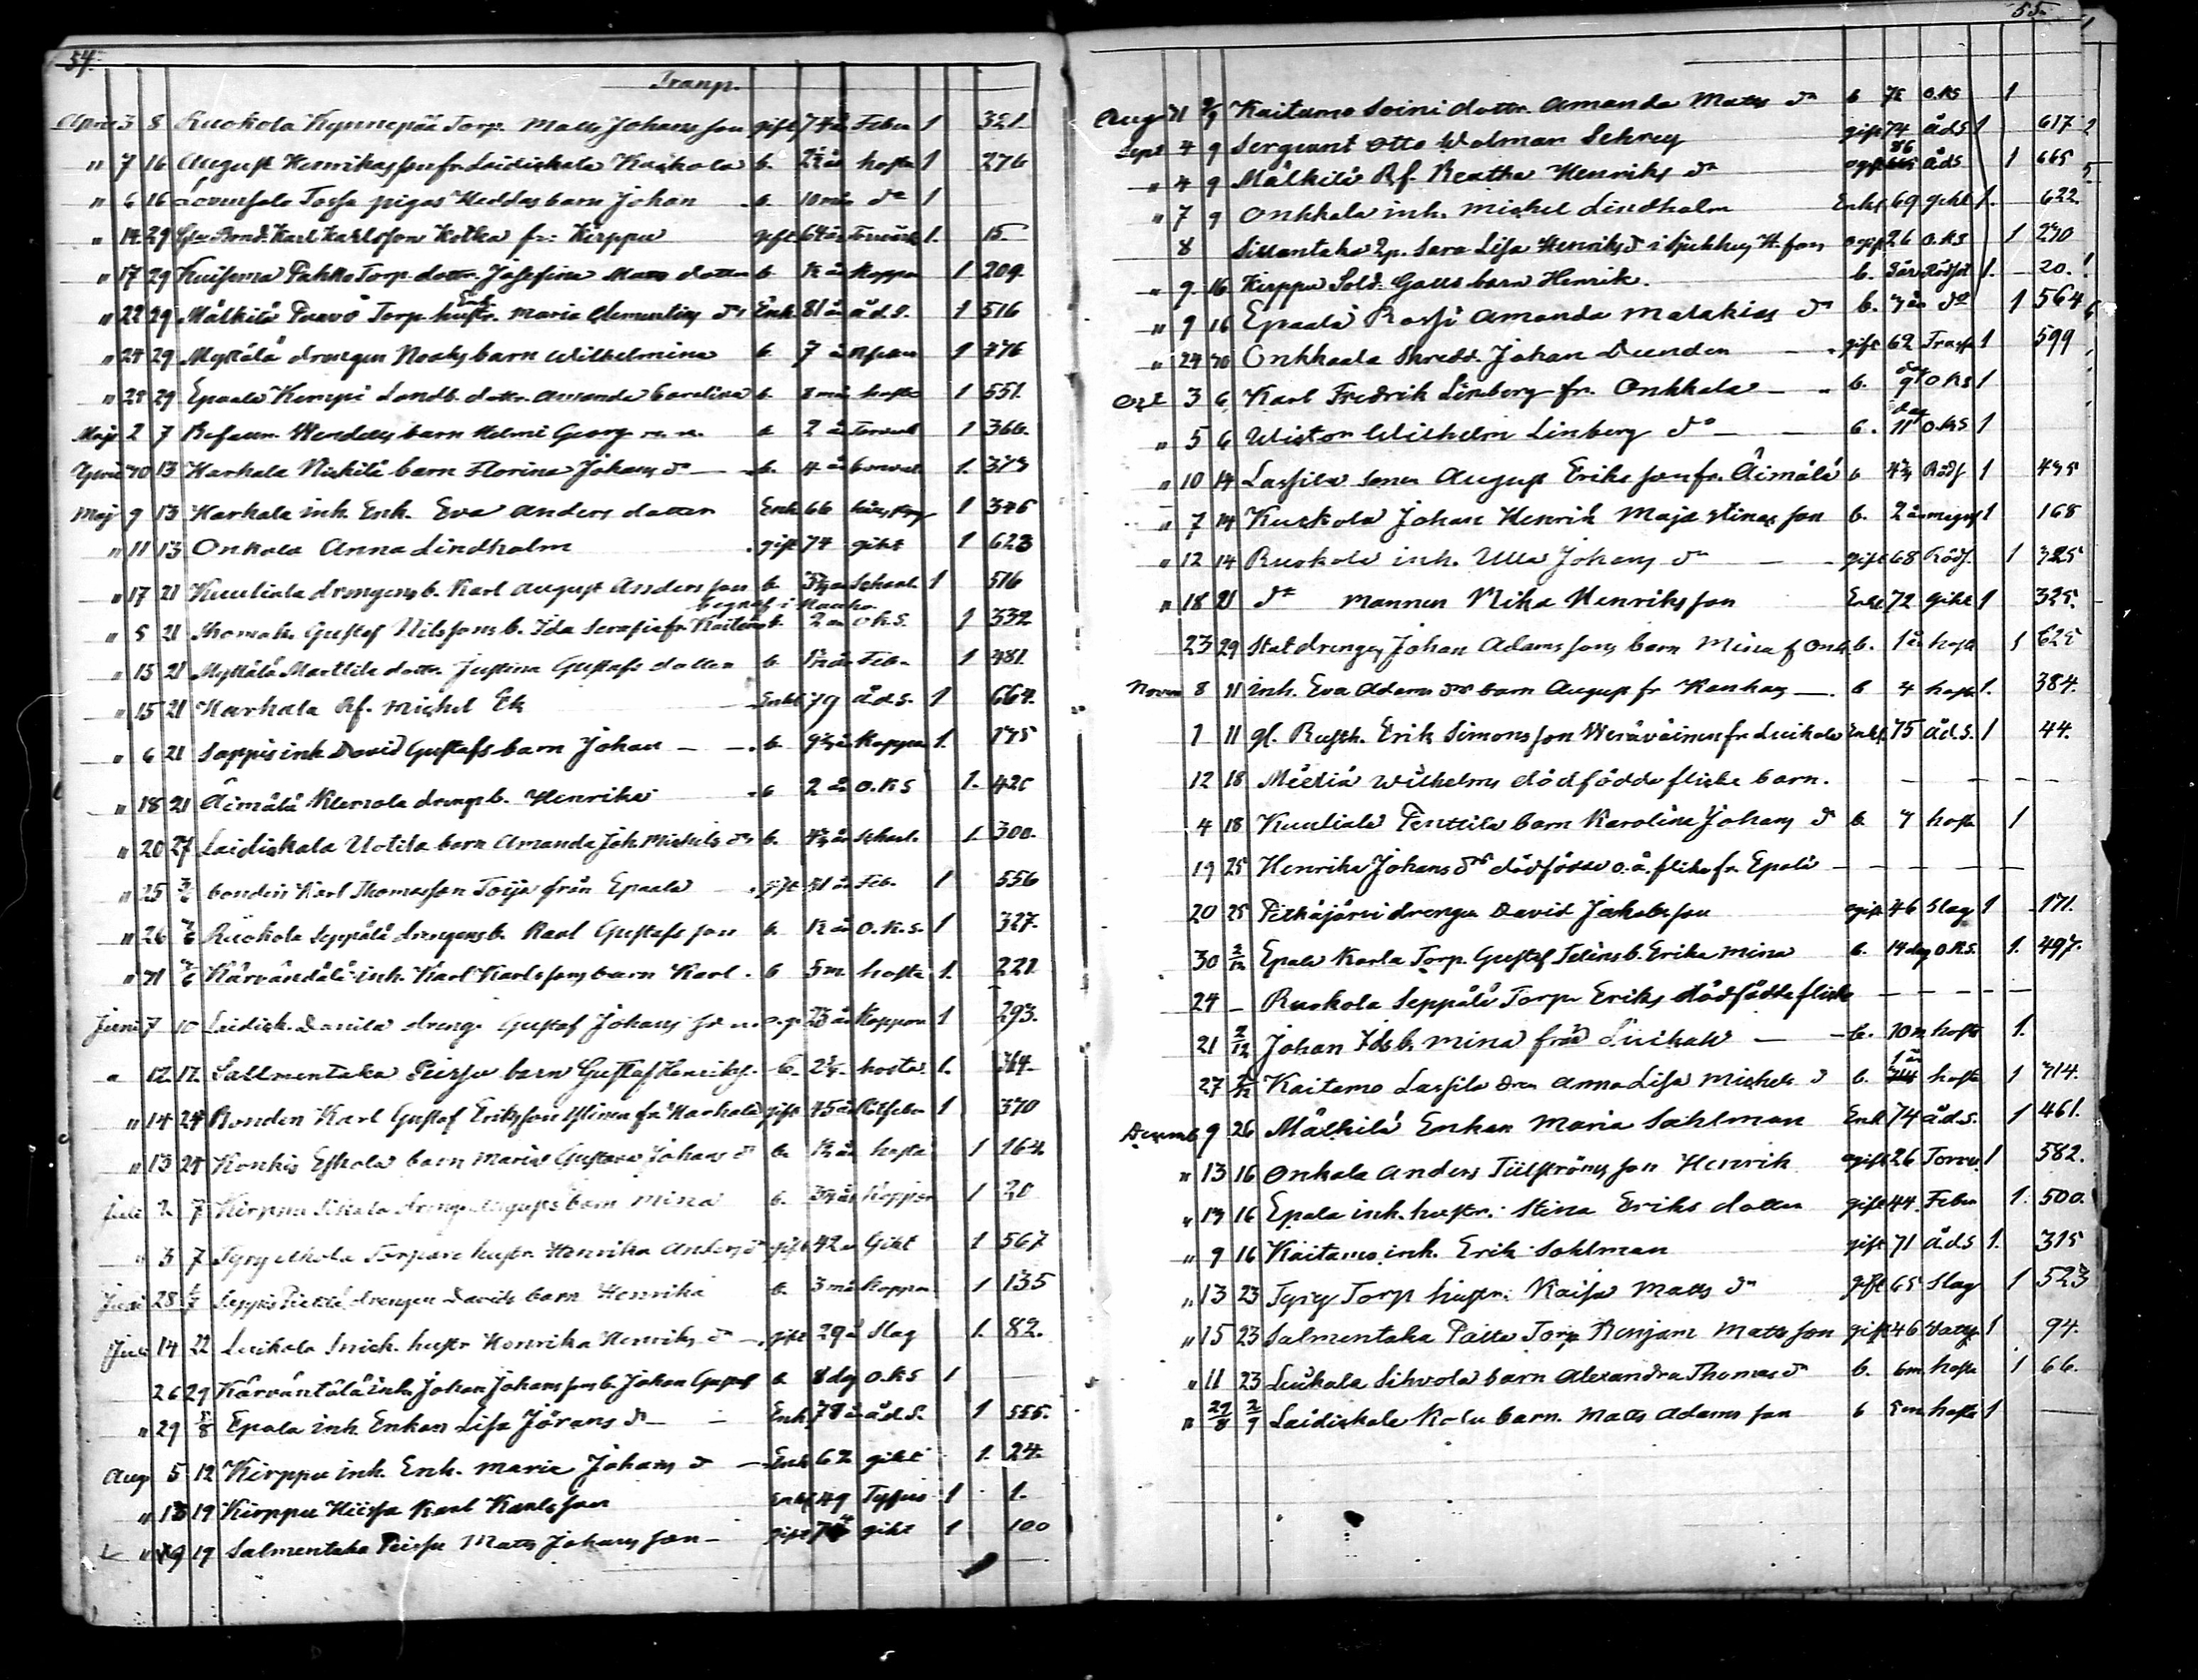 54.
Transp.
April 3 8 Ruokola Kynnepää Torp. Matts Johansson gift 74 å Feber 1 321
" 7 16 August Henriksson fr Laidiskala Kaskola b. 2½ år hosta 1 276
" 6 16 Tossa pigas Heddas barn Johan b. 10 mån do 1
" 14 29 Gla Bond. Karl Karlsson Kotka fr. Kirppu gift 64 år 1. 15
" 17 29 Kuisema Pahko Torp. dottr. Josefina Matts dotter b. ½ år Koppor 1 209.
" 22 29 Mälkilä Paavo Torp. Enk. hustr. Maria Clementis dr Enk. 81 år å.d.s. 1 516
" 24 29 Myttälä drengen Noaks barn Wilhelmina b. 7 å 1 476
" 28 29 Epaala Kempi Landb. dottr. Amanda Carolina b. 8 må hosta 1 551.
Maj 2 7 barn Helmi Georg b 2 å 1 366.
April 30 13 Harhala Niskilä barn Florina Johans dr b. 4 år 1. 373
Maj 9 13 Harhala inh. Enk. Eva Anders dotter Enk 66 1 346
" 11 13 Onkala Anna Lindholm gift 74 gikt 1 623
" 17 21 Kuuliala drengens b. Karl August Andersson b. 3½ år Scharl. 1 516
begraf. i Hauho
" 5 21 Gustaf Nilssons b. Ida Serafia fr Kaitamo b. 2 år o.k.s. 1 332
" 15 21 Myttälä Marttila dottr. Justina Gustafs dotter b. ½ år Feb. 1 481.
" 15 21 Harhala Rf. Michel Ek Enkl 79 å.d.s. 1 664.
" 6 21 Sappis inh David Gustafs barn Johan b. 9½ år Koppor 1. 175
" 18 21 Äimälä Klemola drengs b. Henrika b 2 år o.k.s 1. 426
" 20 27 Laidiskala Uotila barn Amanda Joh Michels dr b. 4½ år Scharl. 1 300.
" 25 3/6 bonden Karl Thomasson Toija från Epaala gift 51 år Feb. 1 556
" 26 3/6 Ruokola Seppälä drengens b. Karl Gustafsson b. ½ år o.k.s. 1 327.
" 31 3/6 Kärväntälä inh. Karl Karlssons barn Karl b 5 m. hosta 1. 221
Juni 7 10 Laidisk. Danila dreng. Gustaf Johansson o.g. 23 år Koppor 1 293.
" 12 17 Salmentaka Peissu barn Gustaf Henriks. b. 2½ hosta 1. 364.
" 14 24 Bonden Karl Gustaf Eriksson Yllinen fr Harhala gift 45 år Rötfeber 1 370
" 13 24 Konkis Eskola barn Maria Gustava Johans dr b. ½ år hosta 1 164
Juli 2 7 Kirppu Sikala dreng Augusts barn Mina b. 3½ år Koppor 1 20
" 3 7 Tyry Torpare hustr Henrika Anders dr gift 42 å Gikt 1 567
Juni 28 1/7 Seppis Pietilä drengen Davids barn Henrika b. 3 må Koppor 1 135
Juli 14 22 Luikala hustr Henrika Henriks dr gift 29 å Slag 1. 82.
26 29 Kärväntälä Inh. Johan Johanssons b. Johan Gustaf b 8 dag o.k.s 1
" 29 5/8 Epala inh Enkan Lisa Jörans dr Enk. 78 å å.d.s. 1 555.
Aug 5 12 Kirppu inh. Enk. Maria Johans dr Enk 62 gikt 1. 24.
" 13 19 Kirppu Hiissa Karl Karlsson Enkl 49 Tyfus 1 1.
" 19 19 Salmentaka Peissu Matts Johansson gift 74 gikt 1 100
55.
Aug 31 2/9 Kaitamo Soini dottr. Amanda Matts dr b o.k.s 1
Sept 4 9 Sergeant Otto Wolmar Schrey gift 74 å.d.s 1 617
" 4 9 Mälkilä Rf. Beatha Henriks dr ogift 86 å.d.s 1 665
" 7 9 Onkkala inh. Michel Lindholm Enkl 69 gikt 1. 622.
8 Sillantaka Qp. Sara Lisa Henriks dr i sjukhus H.fors ogift 26 o.k.s 1 230
" 9 16 Kirppu Sold. Galls barn Henrik. b. 5 år Rödsot 1. 20.
" 9 16 Epaala Rossi Amanda Malakias dr b. 3 år do 1 564
" 24 30 Onkkaala Skredd. Johan Dunden gift 62 1 599
Oct 3 6 Karl Fredrik Linberg fr. Onkkala b. 9 dag o.k.s 1
" 5 6 Wiktor Wilhelm Linberg do b. 11 dag o.k.s 1
" 10 14 Lassila sonen August Eriksson fr Äimälä b 4½ Röds 1 435
" 7 14 Kuokola Johan Henrik Maja Stinas son b. 2 år 1 168
" 12 14 Ruokola inh. Ulla Johans dr gift 68 Röds. 1 325
" 18 21 do mannen Mika Henriksson Enkl 72 gikt 1 325.
23 29 Statdrengen Johan Adamssons barn Mina f Onk. b. 1 år hosta 1 625
Novem 8 11 inh. Eva Adams drs barn August fr Kanhas b 4 hosta 1. 384.
1 11 gl. Rusth. Erik Simonsson Wäräväinen fr Luikala Enkl. 75 å.d.s. 1 44.
12 18 Mietiä Wilhelms dödfödde flicke barn.
4 18 Kuuliala Penttilä barn Karolina Johans dr b. 4 hosta 1
19 25 Henrika Johans drs dödfödde o.ä. flicka fr Epala
20 25 Pitkäjärvi drengen David Jakobsson ogift 46 Slag 1 171.
30 2/12 Epala Karla Torp. Gustaf Telins b. Erika Mina b. 14 dag o.k.s. 1. 497.
24 – Ruokola Seppälä Torp. Eriks dödfödde flicka
21 2/12 Johan Idas b. Mina från Luikala b. 10 m hosta 1.
27 2/12 Kaitamo Lassila Anna Lisa Michels dr b. 1 år hosta 1 314.
Decemb 9 26 Mälkilä Enkan Maria Sahlman Enk 74 å.d.s. 1 461.
" 13 16 Onkala Anders Tillströms son Henrik ogift 26 1 582.
" 13 16 Epala inh. hustr. Stina Eriks dotter gift 44 Feber 1. 500.
" 9 16 Kaitamo inh. Erik Sahlman gift 71 å.d.s 1. 315
" 13 23 Tyry Torp hustr. Kaisa Matts dr gift 65 Slag 1 523
" 15 23 Salmentaka Paitu Torp. Benjam Mattsson gift 46 1 94.
" 11 23 Luikala Sihvola barn Alexandra Thomas dr b. 6 m hosta 1 66.
" 29/8 2/9 Laidiskala Kolu barn. Matts Adamsson b 5 m hosta 1